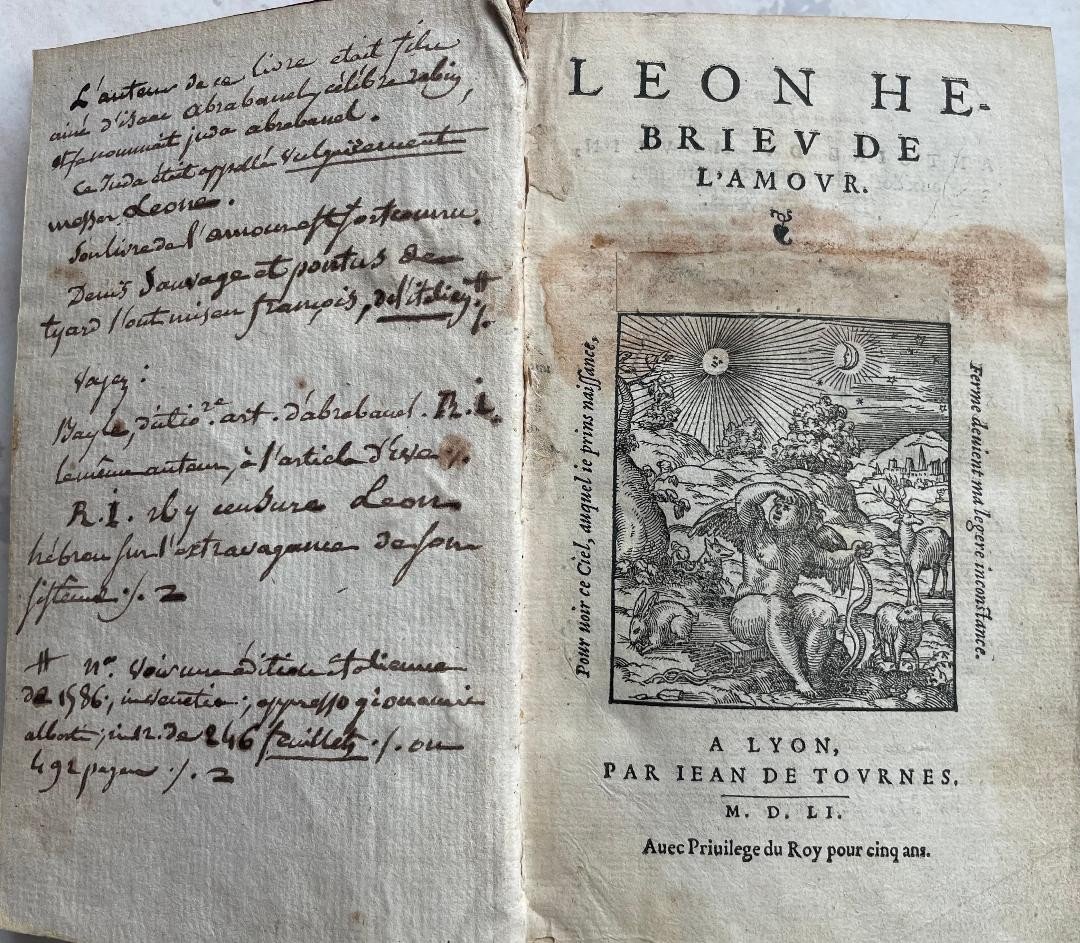 L'auteur de ce livre etait filu
ainé d'isaac abrabanel, célébre rabin,
et se nommait juda abrabanel.
Ce Juda était appellé vulgairement
messer Leone.
Son livre de l'amour est fort connu.
Denis Sauvage et pontus de
tyard l'ont mis en françois, de l'italien #
Voyez :
Bayle, dictio.re art. d'abrabanel. R. L.
le même auteur, à l'article d'Eve
R. I. il y censure Leon
hébreu sur l'extravagance de son
sistême ./. 2
# n.a voir une édition italienne
de 1586; in venetia; appresso giouanni
alberti; in 12. de 246 feuillets ./. ou
492 pages ./. 2
LEON HE-
BRIEV DE
L'AMOVR.
Pour uoir ce Ciel, auquel ie prins naissance,
Ferme deuient ma legere inconstance.
A LYON,
PAR IEAN DE TOVRNES.
M. D. LI.
Auec Priuilege du Roy pour cinq ans.